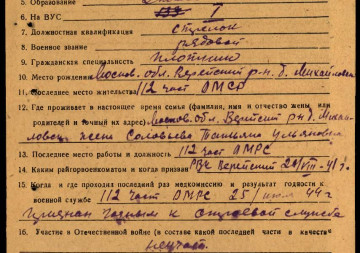 5. Образование
6. На ВУС I
7. Должностная квалификация стрелок
8. Военное звание рядовой
9. Гражданская специальность плотник
10. Место рождения Москов. обл. Верейский р-н. д. Михайловка
11. Последнее место жительства 112 част ОМСР
12. Где проживает в настоящее время семья (фамилия, имя и отчество жены, или
родителей и точный их адрес) Москов. обл. Верейский р-н д. Михай-
ловка, жена Соловьева Татьяна Ульяновна
13. Последнее место работы и должность 112 част ОМРС
14. Каким райгорвоенкоматом и когда призван РВК Верейский 24/VIII-41 г.
15. Когда и где проходил последний раз медкомиссию и результат годности к
военной службе 112 част ОМРС 25/ 44 г
признан годным к строевой службе
16. Участие в Отечественной войне (в составе какой последней части и в качестве